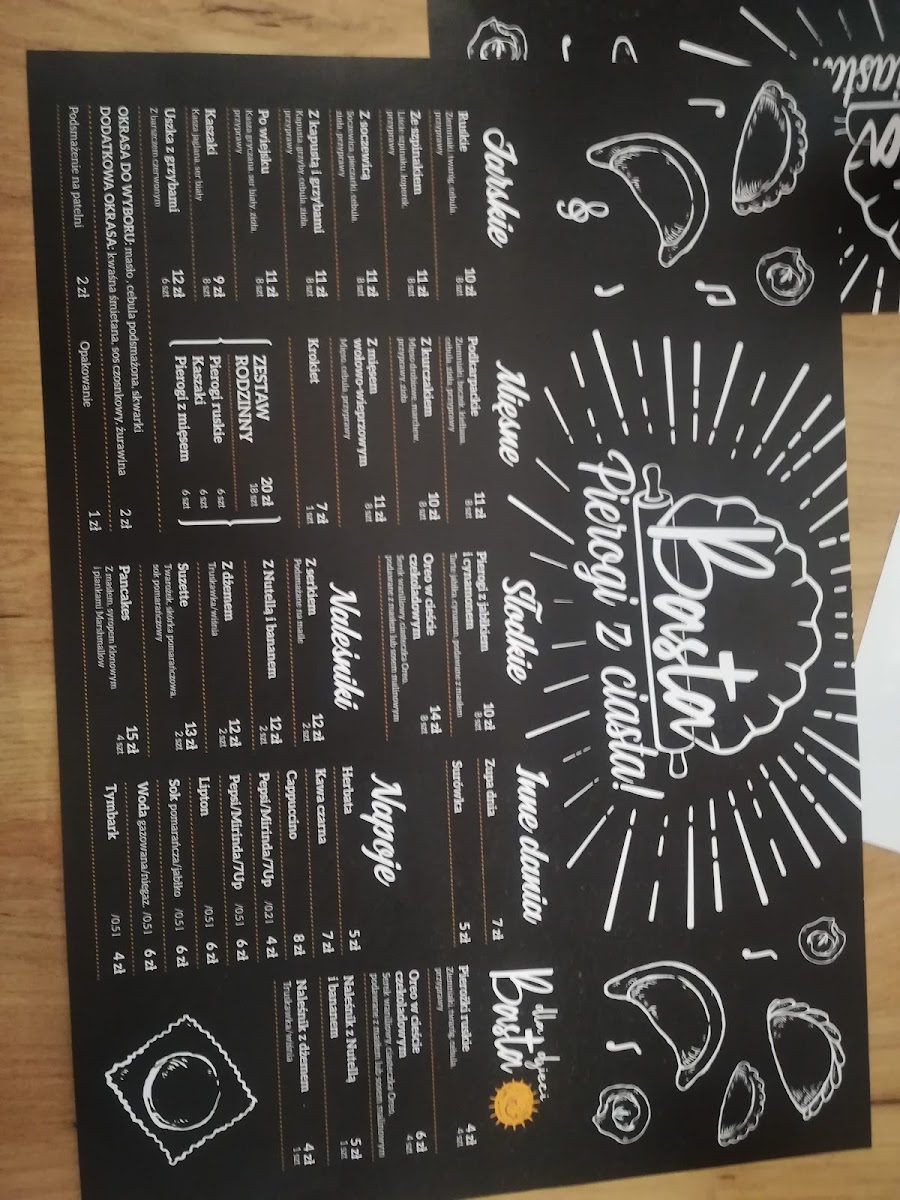 Bosta
Pierogi z ciasta!
Jarskie
Ruskie 10 zł
Ziemniaki, twaróg, cebula, 8 szt
przyprawy
Ze szpinakiem 11 zł
Liście szpinaku, koperek, 8 szt
przyprawy
Z soczewicą 11 zł
Soczewica, pieczarki, cebula, 8 szt
zioła, przyprawy
Z kapustą i grzybami 11 zł
Kapusta, grzyby, cebula, zioła, 8 szt
przyprawy
Po wiejsku 11 zł
Kasza gryczana, ser biały, zioła, 8 szt
przyprawy
Kaszaki 9 zł
Kasza jaglana, ser biały 8 szt
Uszka z grzybami 12 zł
Z barszczem czerwonym 6 szt
Mięsne
Podkarpackie 11 zł
Ziemniaki, boczek, kiełbasa, 8 szt
cebula, zioła, przyprawy
Z kurczakiem 10 zł
Mięso drobiowe, marchew, 8 szt
przyprawy, zioła
Z mięsem
wołowo-wieprzowym 11 zł
Mięso, cebula, przyprawy 8 szt
Krokiet 7 zł
1 szt
ZESTAW
RODZINNY 20 zł
18 szt
Pierogi ruskie 6 szt
Kaszaki 6 szt
Pierogi z mięsem 6 szt
OKRASA DO WYBORU: masło, cebula podsmażona, skwarki
DODATKOWA OKRASA: kwaśna śmietana, sos czosnkowy, żurawina 2 zł
Podsmażenie na patelni 2 zł
Opakowanie 1 zł
Słodkie
Pierogi z jabłkiem
i cynamonem 10 zł
Tarte jabłko, cynamon, podawane z masłem 8 szt
Oreo w cieście
czekoladowym 14 zł
Serek waniliowy, ciasteczka Oreo, 8 szt
podawane z masłem lub sosem malinowym
Naleśniki
Z serkiem 12 zł
Podsmażane na maśle 2 szt
Z Nutellą i bananem 12 zł
2 szt
Z dżemem 12 zł
Truskawka/wiśnia 2 szt
Suzette 13 zł
Twarożek, skórka pomarańczowa, 2 szt
sok pomarańczowy
Pancakes 15 zł
Z masłem, syropem klonowym 4 szt
i piankami Marshmallow
Inne dania
Zupa dnia 7 zł
Surówka 5 zł
Napoje
Herbata 5 zł
Kawa czarna 7 zł
Cappuccino 8 zł
Pepsi/Mirinda/7Up /0.2l 4 zł
Pepsi/Mirinda/7Up /0.5l 6 zł
Lipton /0.5l 6 zł
Sok pomarańcza/jabłko /0.5l 6 zł
Woda gazowana/niegaz. /0.5l 6 zł
Tymbark /0.5l 4 zł
dla dzieci
Bosta
Pierożki ruskie 4 zł
Ziemniaki, twaróg, cebula, 4 szt
przyprawy
Oreo w cieście
czekoladowym 6 zł
Serek waniliowy, ciasteczka Oreo, 4 szt
podawane z masłem lub sosem malinowym
Naleśnik z Nutellą
i bananem 5 zł
1 szt
Naleśnik z dżemem 4 zł
Truskawka/wiśnia 1 szt